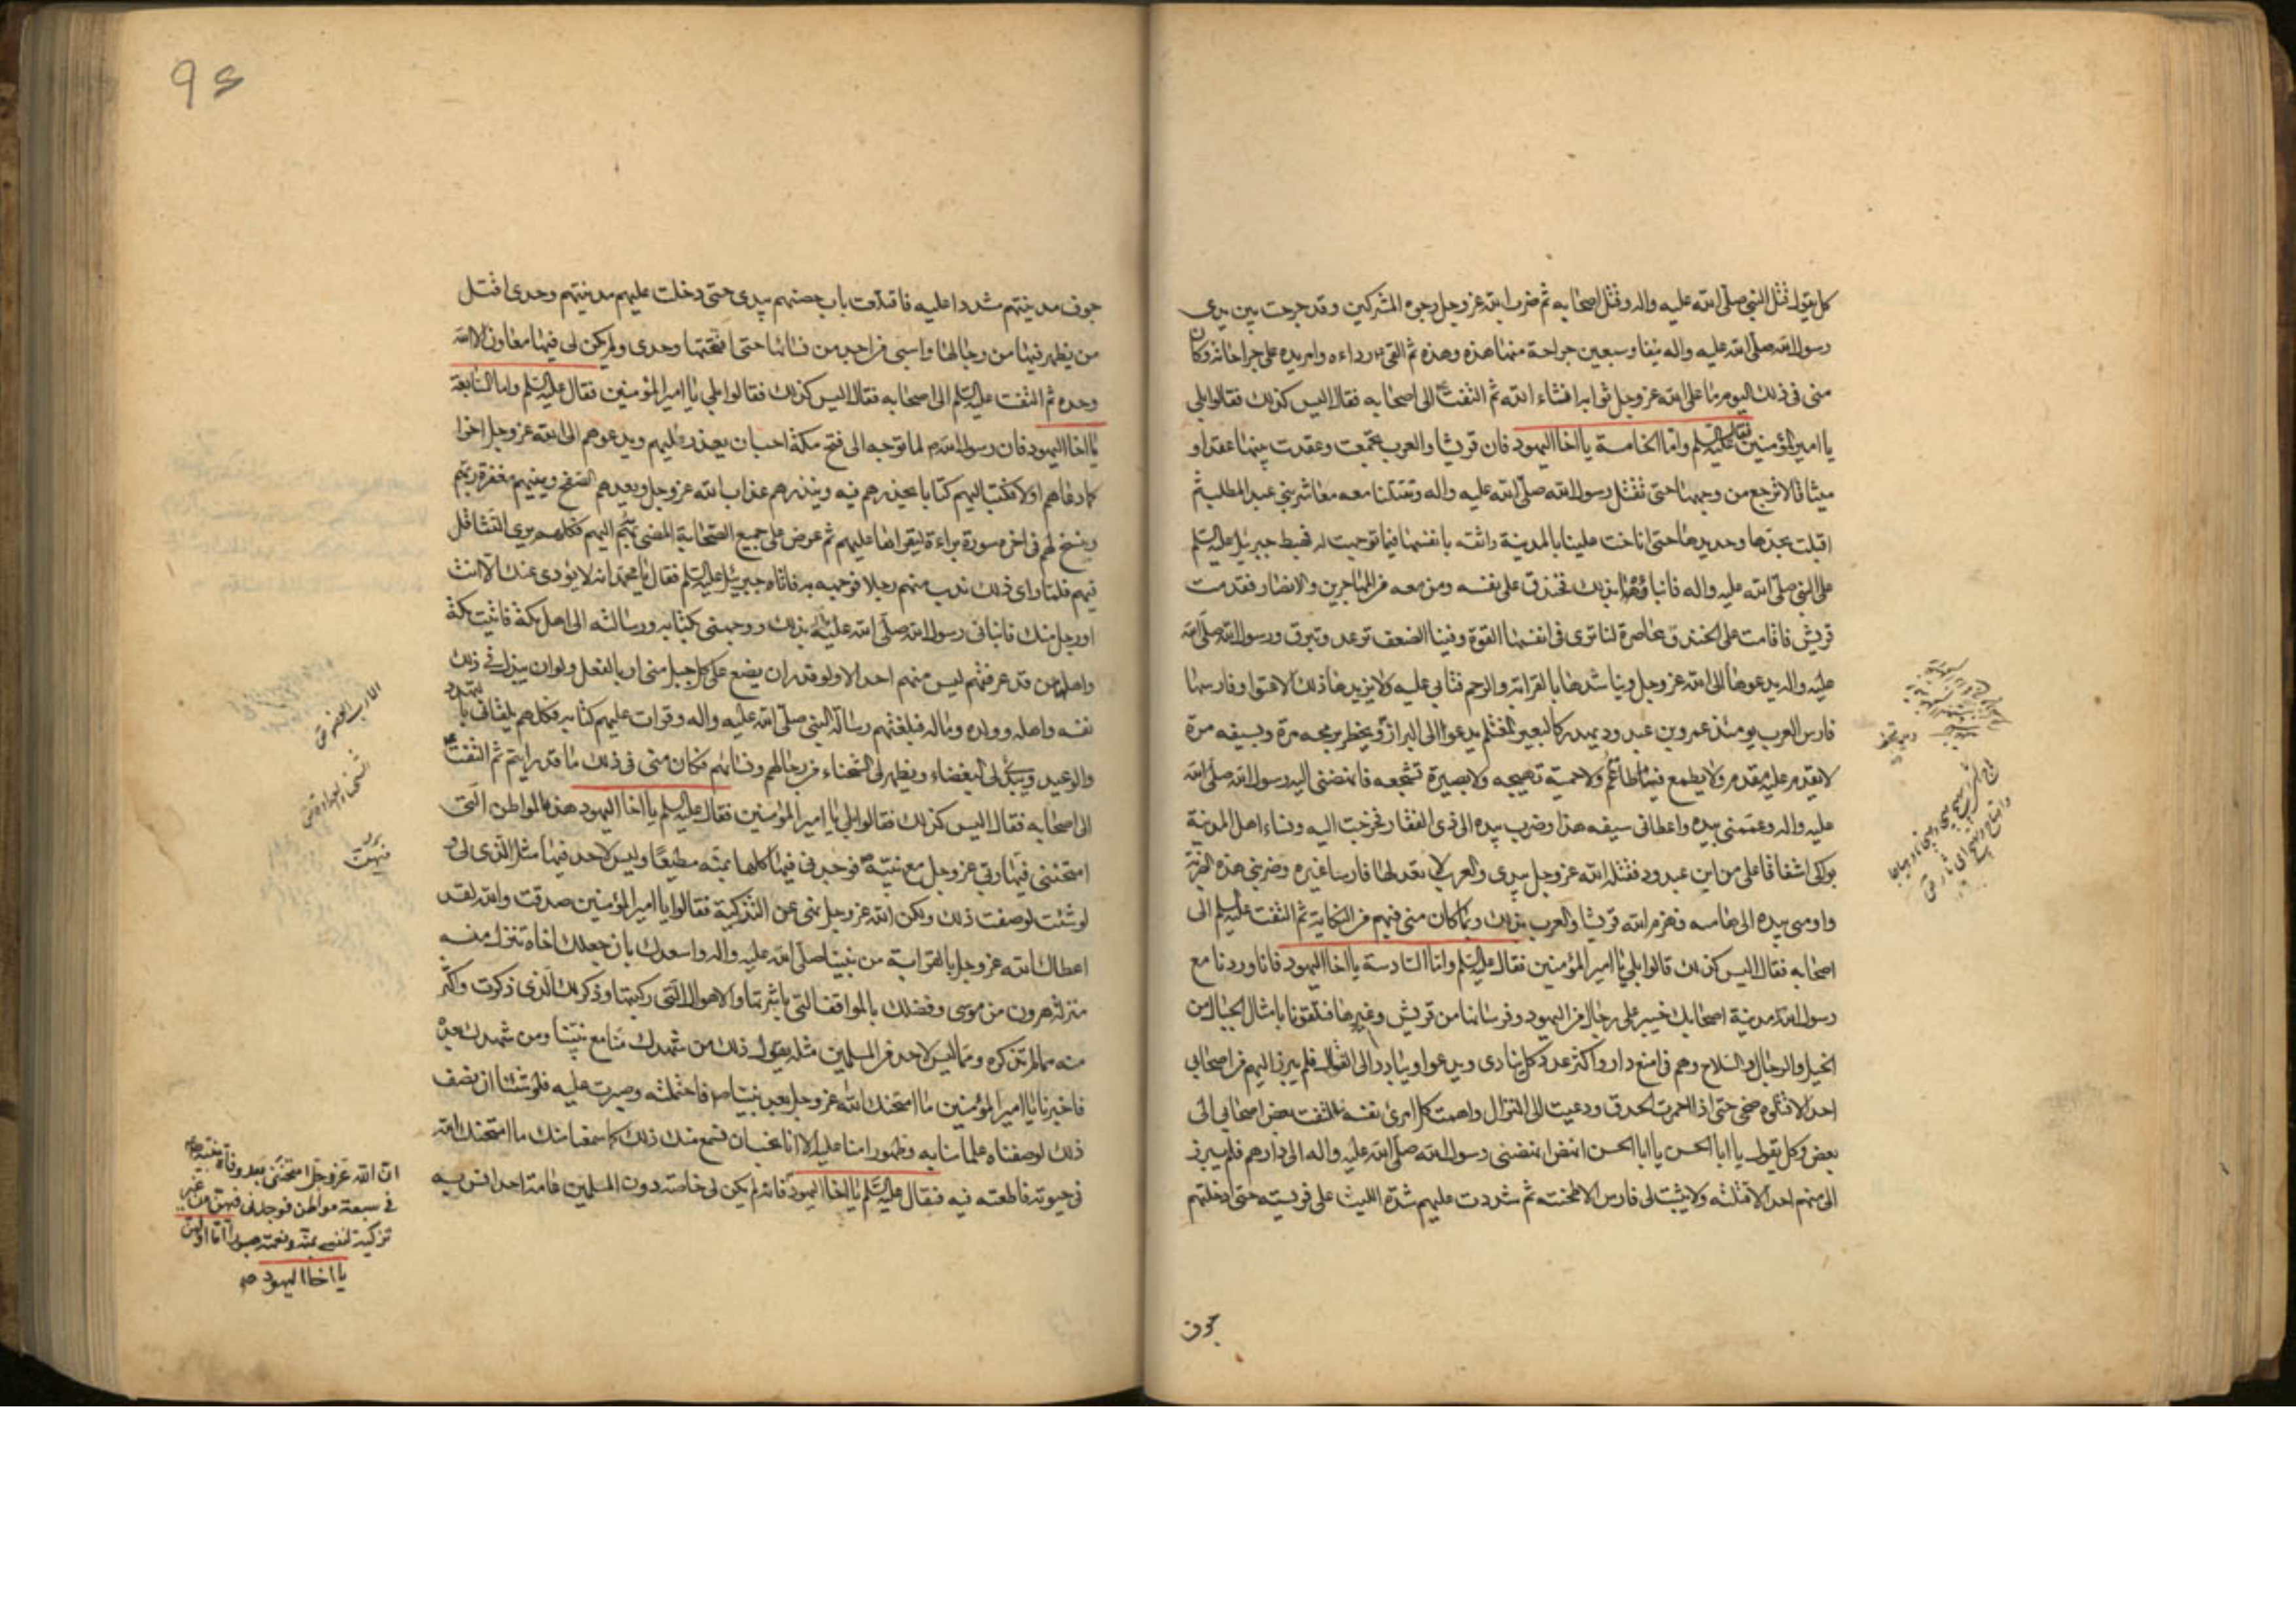 كل يقول قتل النبي صلى الله عليه واله وقتل اصحابه ثم ضرب الله عز وجل وجوه المشركين وقد جرحت بين يدي
رسول الله صلى الله عليه واله نيفا وسبعين جراحة منها هذه وهذه ثم القى رداءه وامر يده على جراحاته وكان
منى فى ذلك اليوم ما على الله عز وجل ثوابه انشاء الله ثم التفت الى اصحابه فقال اليس كذلك فقالوا بلى
يا امير المؤمنين فقال عليه السلم واما الخامسة يا اخا اليهود فان قريشا والعرب تجمعت وعقدت بينها عقدا و
ميثاقا لا ترجع من وجهها حتى تقتل رسول الله صلى الله عليه واله وتقتلنا معه معاشر بنى عبد المطلب ثم
اقبلت بحدها وحديدها حتى اناخت علينا بالمدينة واثقه بانفسها فيما توجهت له فهبط جبرئيل عليه السلم
على النبى صلى الله عليه واله فانباه بذلك فخندق على نفسه ومن معه من المهاجرين والانصار فقدمت
قريش فاقامت على الخندق محاصرة لنا ترى فى انفسها القوة وفينا الضعف ترعد وتبرق ورسول الله صلى الله
عليه واله يدعوها الى الله عز وجل ويناشدها بالقرابة والرحم فتابى عليه ولا يزيدها ذلك الا عتوا وفارسها
فارس العرب يومئذ عمرو بن عبد ود يهدر كالبعير المغتلم يدعوا الى البراز ويخطر برمحه مرة وبسيفه مرة
لا يقدم عليه مقدم ولا يطمع فيه طامع ولا حمية تهيجه ولا بصيرة تشجعه فانهضنى اليه رسول الله صلى الله
عليه واله وعممنى بيده واعطانى سيفه هذا وضرب بيده الى ذى الفقار فخرجت اليه ونساء اهل المدينة
بواكى اشفاقا على من ابن عبد ود فقتله الله عز وجل بيدى والعرب لا تعد لها فارسا غيره وضربنى هذه الضربة
واومى بيده الى هامته فهزم الله قريشا والعرب بذلك وبما كان منى فيهم من النكاية ثم التفت عليه السلم الى
اصحابه فقال اليس كذلك قالوا بلى يا امير المؤمنين فقال عليه السلم واما السادسة يا اخا اليهود فانا وردنا مع
رسول الله مدينة اصحابك خيبر على رجال من اليهود وفرسانها من قريش وغيرها فتلقونا بامثال الجبال من
الخيل والرجال والسلاح وهم فى امنع دار واكثر عدد كل ينادى ويدعوا ويبادر الى القتال فلم يبرز اليهم من اصحابى
احد الا قتلوه حتى اذا احمرت الحدق ودعيت الى النزال واهمت كل امرئ نفسه والتفت بعض اصحابى الى
بعض وكل يقول يا ابا الحسن يا ابا الحسن انهض انهضنى رسول الله صلى الله عليه واله الى دارهم فلم يبرز
الى منهم احد الا قتلته ولا يثبت لى فارس الا طحنته ثم شددت عليهم شدة الليث على فريسته حتى ادخلتهم
جوف
95
جوف مدينتهم مشددا عليه فاقتلعت باب حصنهم بيدى حتى دخلت عليهم مدينتهم وحدى اقتل
من يظهر فيها من رجالها واسبى من اجد من نسائها حتى افتتحتها وحدى ولم يكن لى فيها معاون الا الله
وحده ثم التفت عليه السلم الى اصحابه فقال اليس كذلك فقالوا بلى يا امير المؤمنين فقال عليه السلم واما السابعة
يا اخا اليهود فان رسول الله لما توجه الى فتح مكة احب ان يعذر اليهم ويدعوهم الى الله عز وجل اخرا
كما دعاهم اولا فكتب اليهم كتابا يحذرهم فيه وينذرهم عذاب الله عز وجل ويعدهم الصفح ويمنيهم مغفرة ربهم
ونسخ لهم فى اخره سورة براءة ليقراها عليهم ثم عرض على جميع اصحابه المضى به اليهم فكلهم يرى التثاقل
فيهم فلما راى ذلك ندب منهم رجلا فوجهه به فاتاه جبرئيل عليه السلم فقال يا محمد انه لا يؤدى عنك الا انت
او رجل منك فانبانى رسول الله صلى الله عليه بذلك ووجهنى بكتابه ورسالته الى اهل مكة فاتيت مكة
واهلها من قد عرفتم ليس منهم احد الا ولو قدر ان يضع على كل جبل منى اربا لفعل ولو ان يبذل فى ذلك
نفسه واهله وولده وماله فبلغتهم رسالة النبى صلى الله عليه واله وقرات عليهم كتابه فكلهم يلقانى بالتهدد
والوعيد ويبدى لى البغضاء ويظهر لى الشحناء من رجالهم ونسائهم فكان منى فى ذلك ما قد رايتم ثم التفت
الى اصحابه فقال اليس كذلك فقالوا بلى يا امير المؤمنين فقال عليه السلم يا اخا اليهود هذه المواطن التى
امتحننى فيها ربى عز وجل مع نبيه فوجدنى فيها كلها بمنه مطيعا وليس لاحد فيها مثل الذى لى و
لو شئت لوصفت ذلك ولكن الله عز وجل نهى عن التزكية فقالوا يا امير المؤمنين صدقت والله لقد
اعطاك الله عز وجل بالقرابة من نبينا صلى الله عليه واله واسعدك بان جعلك اخاه تنزل منه
منزلة هرون من موسى وفضلك بالمواقف التى باشرتها والاهوال التى ركبتها وذكر ذلك الذى ذكرت واكثر
منه مما لم تذكره ومما ليس لاحد من المسلمين مثله يقول ذلك من شهدك منا مع نبينا ومن شهدك بعده
فاخبرنا يا امير المؤمنين ما امتحنك الله عز وجل بعد نبينا فاحتملته وصبرت عليه فلو شئنا ان نصف
ذلك لوصفناه علما منا به وظهورا منا عليه الا انا نحب ان نسمع منك ذلك كما سمعنا منك ما امتحنك الله
فى حيوته فاطعته فيه فقال عليه السلم يا اخا اليهود فانه لم يكن لى خاصة دون المسلمين عامة احد انس به
ان الله عز وجل امتحننى بعد وفاة نبيه
فى سبعة مواطن فوجدنى فيهن من غير
تزكية لنفسى بمنه ونعمته صبورا اما اولهن
يا اخا اليهود